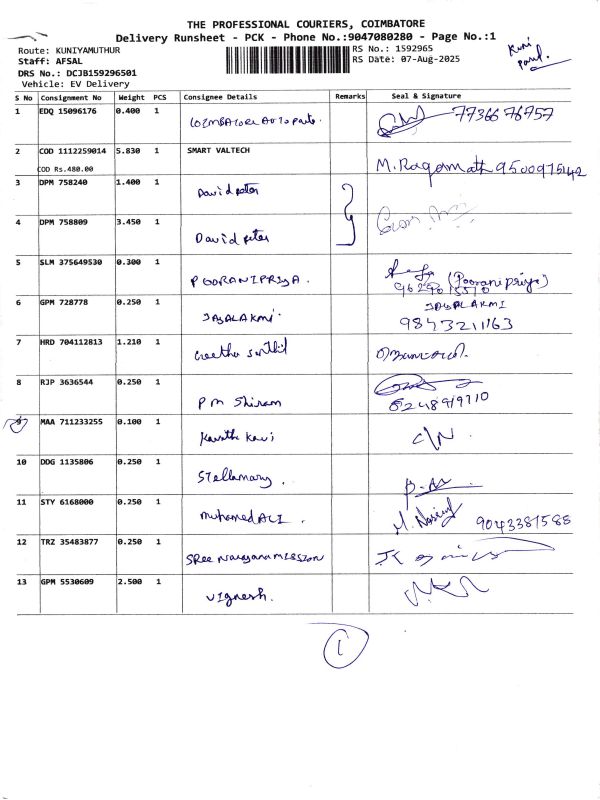 THE PROFESSIONAL COURIERS, COIMBATORE
Delivery Runsheet - PCK - Phone No.:9047080280 - Page No.:1
Route: KUNIYAMUTHUR
RS No.: 1592965
Staff: AFSAL
RS Date: 07-Aug-2025
DRS No.: DCJB159296501
Vehicle: EV Delivery
S No Consignment No Weight PCS Consignee Details Remarks Seal & Signature
1 EDQ 15096176 0.400 1 COIMBATORE Autoparts. 7736676757
2 COD 1112259014 5.830 1 SMART VALTECH
COD Rs.480.00 M. Ragamath 9500975142
3 DPM 758240 1.400 1 David peter
4 DPM 758809 3.450 1 David peter
5 SLM 375649530 0.300 1 POORANIPRIYA. (Pooranipriya)
6 GPM 728778 0.250 1 JAYALAKMI. JAYALAKMI
9843211163
7 HRD 704112813 1.210 1 Geetha Senthil
8 RJP 3636544 0.250 1 PM Shiram
8248919710
9 MAA 711233255 0.100 1 Kavathi Kavi C/N.
10 DDG 1135806 0.250 1 Stellamary.
11 STY 6168000 0.250 1 Muhamed ALI. 9043387588
12 TRZ 35483877 0.250 1 SRee Narayana MISSION
13 GPM 5530609 2.500 1 Vignesh.
1